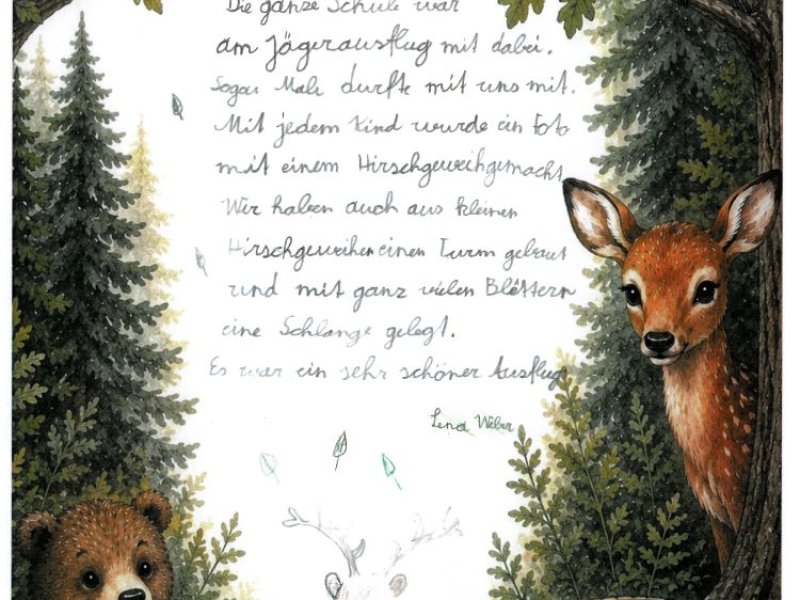 Die ganze Schule war
am Jägerausflug mit dabei.
Sogar Mali durfte mit uns mit.
Mit jedem Kind wurde ein Foto
mit einem Hirschgeweihgemacht
Wir haben auch aus kleinen
Hirschgeweihen einen Turm gebaut
und mit ganz vielen Blättern
eine Schlange gelegt.
Es war ein sehr schöner Ausflug
Lena Weber